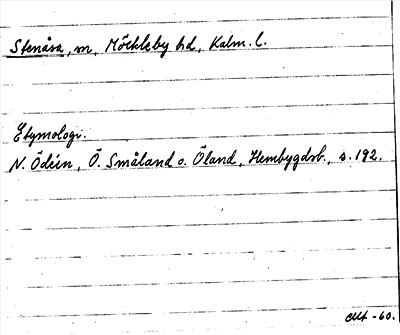 Stenåsa, sn, Möckleby hd, Kalm. l.
Etymologi.
N. Ödéen, Ö. Småland o. Öland, Hembygdsb., s. 192.
-60.